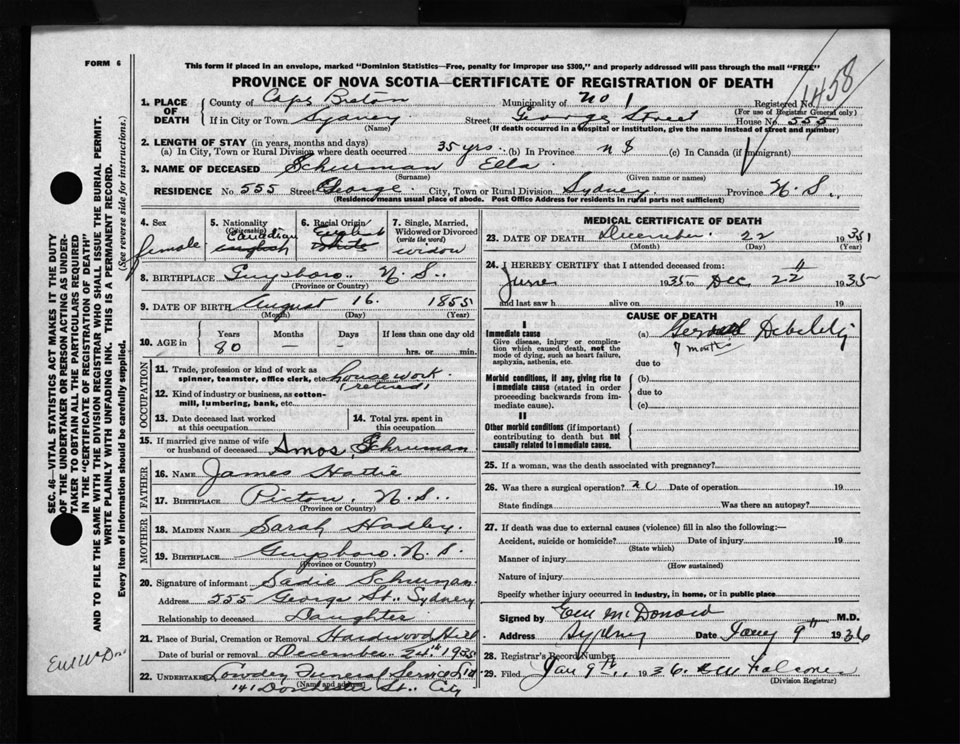 FORM 6
This form if placed in an envelope, marked "Dominion Statistics—Free, penalty for improper use $300," and properly addressed will pass through the mail "FREE"
PROVINCE OF NOVA SCOTIA—CERTIFICATE OF REGISTRATION OF DEATH
1458
1. PLACE OF DEATH
County of Cape Breton Municipality of No 1 Registered No.
(For use of Registrar General only)
If in City or Town Sydney Street George Street House No. 555
(Name) (If death occurred in a hospital or institution, give the name instead of street and number)
2. LENGTH OF STAY (in years, months and days)
(a) In City, Town or Rural Division where death occurred 35 yrs. (b) In Province N S (c) In Canada (if immigrant)
3. NAME OF DECEASED Schurman Ella
(Surname) (Given name or names)
RESIDENCE No 555 Street George City, Town or Rural Division Sydney Province N. S.
(Residence means usual place of abode. Post Office Address for residents in rural parts not sufficient)
4. Sex
female
5. Nationality
(Citizenship)
Canadian
6. Racial Origin
English
7. Single, Married, Widowed or Divorced
(write the word)
widow
8. BIRTHPLACE Guysboro N. S.
(Province or Country)
9. DATE OF BIRTH August 16. 1855
(Month) (Day) (Year)
10. AGE in Years Months Days If less than one day old
80 — — hrs. or min.
OCCUPATION
11. Trade, profession or kind of work as spinner, teamster, office clerk, etc. housework
(retired)
12. Kind of industry or business, as cotton-mill, lumbering, bank, etc.
13. Date deceased last worked at this occupation
14. Total yrs. spent in this occupation
15. If married give name of wife or husband of deceased Amos Schurman
FATHER
16. NAME James Hattie
17. BIRTHPLACE Pictou, N. S.
(Province or Country)
MOTHER
18. MAIDEN NAME Sarah Hadley.
19. BIRTHPLACE Guysboro. N. S.
(Province or Country)
20. Signature of informant Sadie Schurman
Address 555 George St., Sydney
Relationship to deceased Daughter
21. Place of Burial, Cremation or Removal Hardwood Hill
Date of burial or removal December 24th 1935
22. UNDERTAKER Lowdry Funeral Service Ltd
(Name and address)
141 Dorchester St., City
MEDICAL CERTIFICATE OF DEATH
23. DATE OF DEATH December 22 1935
(Month) (Day) (Year)
24. I HEREBY CERTIFY that I attended deceased from:
June 1935 to Dec 22 1935
and last saw h alive on 19
CAUSE OF DEATH
I
Immediate cause
Give disease, injury or complication which caused death, not the mode of dying, such as heart failure, asphyxia, asthenia, etc.
(a) Debility
7 months
due to
Morbid conditions, if any, giving rise to immediate cause (stated in order proceeding backwards from immediate cause).
(b)
due to
(c)
II
Other morbid conditions (if important) contributing to death but not causally related to immediate cause.
25. If a woman, was the death associated with pregnancy?
26. Was there a surgical operation? no Date of operation 19
State findings Was there an autopsy?
27. If death was due to external causes (violence) fill in also the following:—
Accident, suicide or homicide? Date of injury 19
(State which)
Manner of injury
(How sustained)
Nature of injury
Specify whether injury occurred in industry, in home, or in public place
Signed by McDonald M.D.
Address Sydney Date Jany 9th 1936
28. Registrar's Record Number
29. Filed Jan 9th 1936. Falconer
(Division Registrar)
SEC. 46—VITAL STATISTICS ACT MAKES IT THE DUTY
OF THE UNDERTAKER OR PERSON ACTING AS UNDER-
TAKER TO OBTAIN ALL THE PARTICULARS REQUIRED
IN THE "CERTIFICATE OF REGISTRATION OF DEATH"
AND TO FILE THE SAME WITH THE DIVISION REGISTRAR WHO SHALL ISSUE THE BURIAL PERMIT.
WRITE PLAINLY WITH UNFADING INK. THIS IS A PERMANENT RECORD.
Every item of information should be carefully supplied. (See reverse side for instructions.)